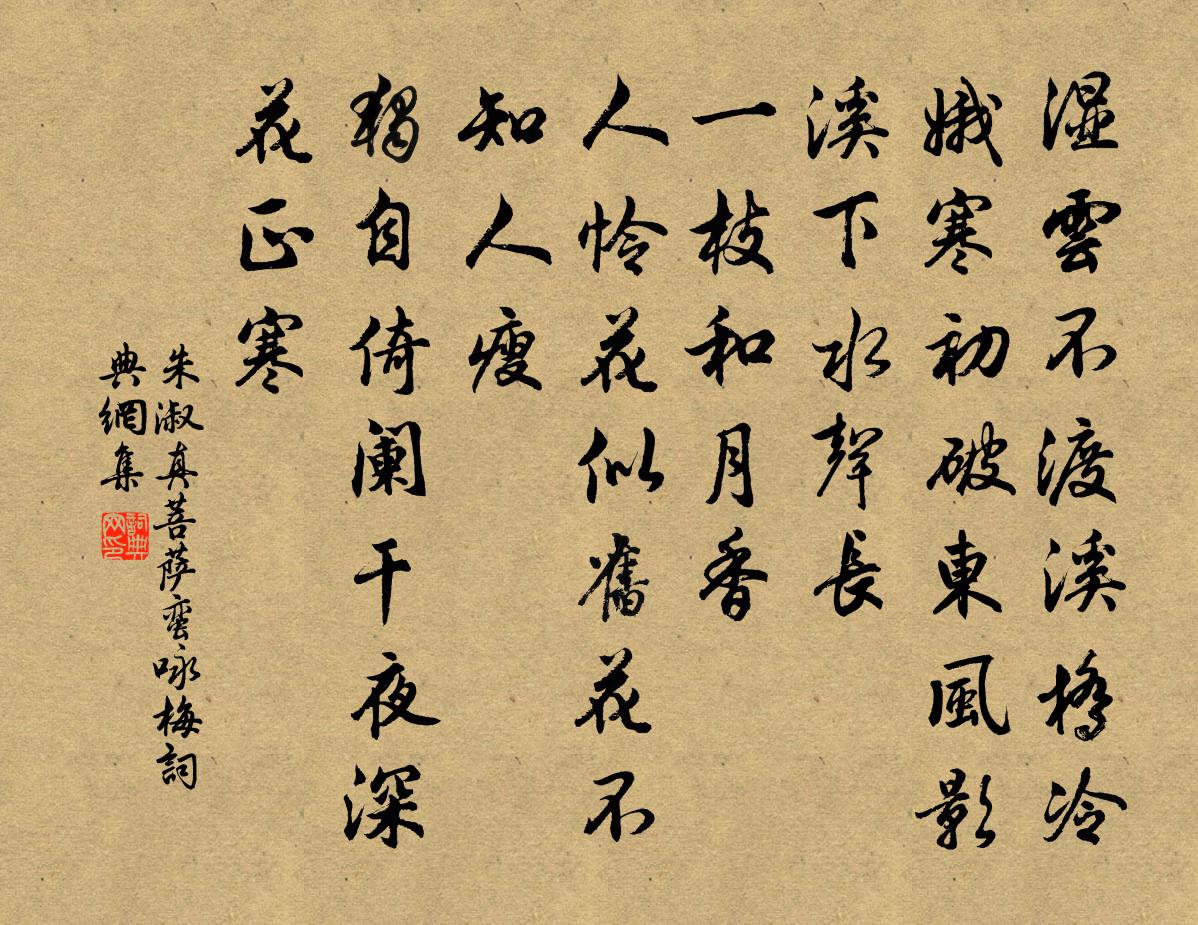 湿雲不渡溪橋冷
娥寒初破東風影
溪下水聲長
一枝和月香
人怜花似舊花不
知人瘦
獨自倚闌干夜深
花正寒
朱淑真菩萨蛮咏梅詞
典網集
詞典
网印